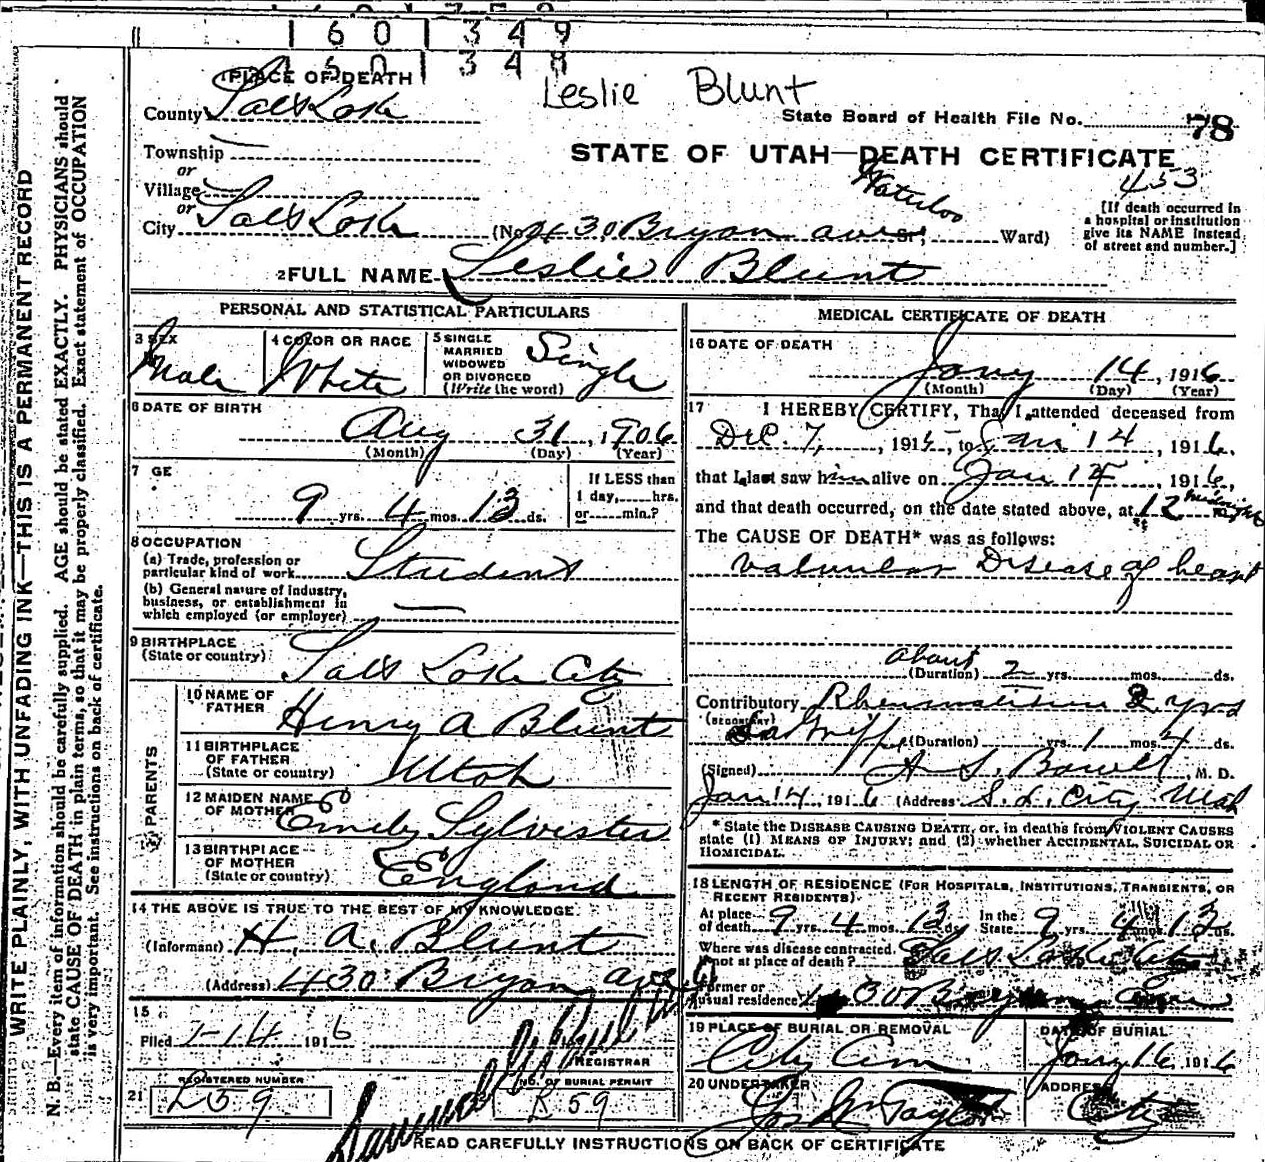 1 6 0 1 3 4 9
PLACE OF DEATH
Leslie Blunt
County Salt Lake
State Board of Health File No. 78
Township
STATE OF UTAH—DEATH CERTIFICATE
or
Village
Waterloo
453
or
City Salt Lake (No. 430 Bryan ave St; Ward)
[If death occurred in
a hospital or institution
give its NAME instead
of street and number.]
2 FULL NAME Leslie Blunt
PERSONAL AND STATISTICAL PARTICULARS
3 SEX
Male
4 COLOR OR RACE
White
5 SINGLE
MARRIED
WIDOWED
OR DIVORCED
(Write the word)
Single
6 DATE OF BIRTH
Aug 31, 1906
(Month) (Day) (Year)
7 GE
9 yrs. 4 mos. 13 ds.
If LESS than
1 day, hrs.
or min.?
8 OCCUPATION
(a) Trade, profession or
particular kind of work Student
(b) General nature of Industry,
business, or establishment in
which employed (or employer)
9 BIRTHPLACE
(State or country) Salt Lake City
PARENTS
10 NAME OF
FATHER Henry A Blunt
11 BIRTHPLACE
OF FATHER
(State or country) Utah
12 MAIDEN NAME
OF MOTHER Emily Sylvester
13 BIRTHPLACE
OF MOTHER
(State or country) England
14 THE ABOVE IS TRUE TO THE BEST OF MY KNOWLEDGE
(Informant) H. A. Blunt
(Address) 430 Bryan ave
15
Filed 1-14 1916
REGISTRAR
21
REGISTERED NUMBER
NO. OF BURIAL PERMIT
59
MEDICAL CERTIFICATE OF DEATH
16 DATE OF DEATH
Jany 14, 1916
(Month) (Day) (Year)
17 I HEREBY CERTIFY, That I attended deceased from
Dec. 7, 1915, to Jan 14, 1916,
that I last saw him alive on Jan 14, 1916,
and that death occurred, on the date stated above, at 12 midnight m.
The CAUSE OF DEATH* was as follows:
Valvular Disease of heart
about
(Duration) 2 yrs. mos. ds.
Contributory Rheumatism 2 yrs
(SECONDARY)
La Grippe (Duration) yrs. 1 mos. 4 ds.
(Signed) A. S. , M. D.
Jan 14, 1916 (Address) S. L. City Utah
* State the DISEASE CAUSING DEATH, or, in deaths from VIOLENT CAUSES
state (1) MEANS OF INJURY; and (2) whether ACCIDENTAL, SUICIDAL OR
HOMICIDAL.
18 LENGTH OF RESIDENCE (FOR HOSPITALS, INSTITUTIONS, TRANSIENTS, OR
RECENT RESIDENTS)
At place
of death 9 yrs. 4 mos. 13 ds.
In the
State 9 yrs. 4 mos. 13 ds.
Where was disease contracted,
if not at place of death? Salt Lake City
Former or
usual residence 430 Bryan Ave
19 PLACE OF BURIAL OR REMOVAL
City Cem
DATE OF BURIAL
Jany 16, 1916
20 UNDERTAKER
Jos Wm Taylor
ADDRESS
City
READ CAREFULLY INSTRUCTIONS ON BACK OF CERTIFICATE
WRITE PLAINLY, WITH UNFADING INK—THIS IS A PERMANENT RECORD
N. B.—Every item of information should be carefully supplied. AGE should be stated EXACTLY. PHYSICIANS should
state CAUSE OF DEATH in plain terms, so that it may be properly classified. Exact statement of OCCUPATION
is very important. See instructions on back of certificate.